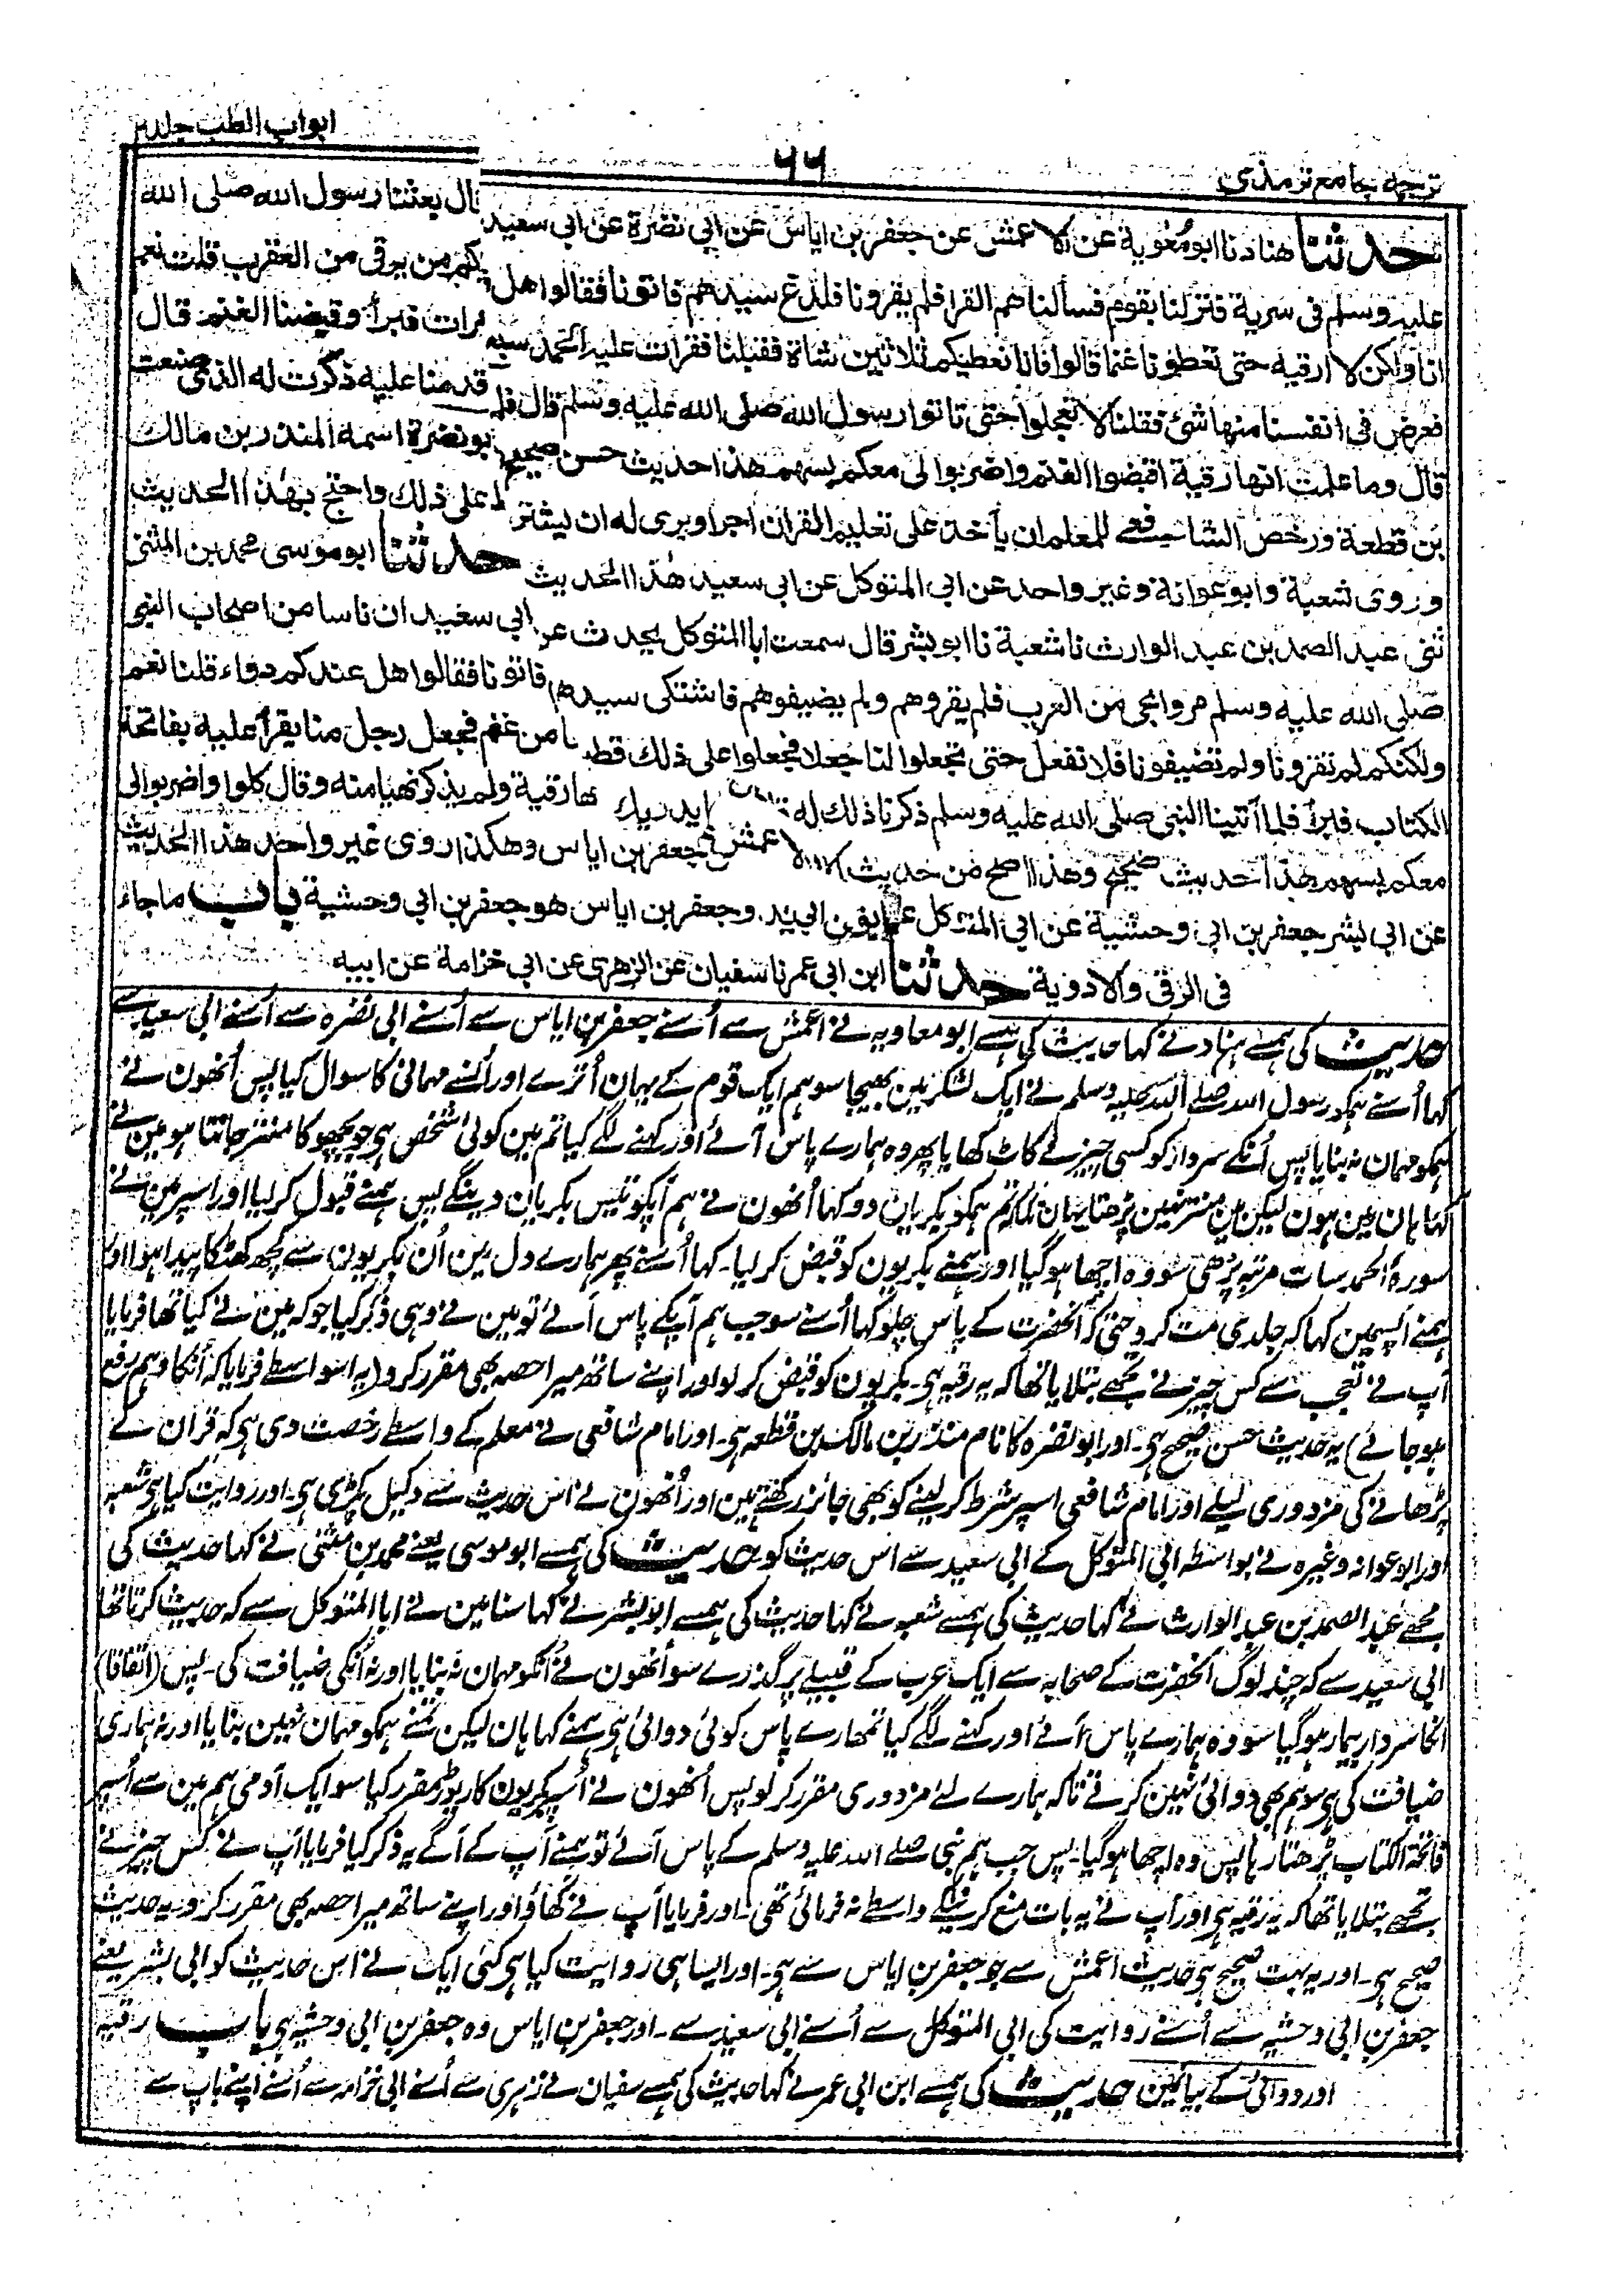 ترجمہ جامع ترمذی
۶۶
ابواب الطب جلد ۲
حدثنا هنادنا ابو معوية عن الاعمش عن جعفر بن اياس عن ابي نضرة عن ابي سعيد قال بعثنا رسول الله صلى الله
عليه وسلم فى سرية فنزلنا بقوم فسألناهم القرا فلم يقرونا فلدغ سيدهم فاتونا فقالوا هل فيكم من يرقى من العقرب قلت نعم
انا ولكن لا ارقيه حتى تعطونا غنما قالوا فانا نعطيكم ثلاثين شاة فقبلنا فقرات عليه الحمد سبع مرات فبرأ وقبضنا الغنم قال
فعرض فى انفسنا منها شئ فقلنا لا تعجلوا حتى تاتوا رسول الله صلى الله عليه وسلم قال فلما قدمنا عليه ذكرت له الذى صنعت
قال وما علمت انها رقية اقبضوا الغنم واضربوا لى معكم بسهم هذا حديث حسن صحيح وابو نضرة اسمه المنذر بن مالك
بن قطعة ورخص الشافعى للمعلم ان يأخذ على تعليم القران اجرا ويرى له ان يشترط على ذلك واحتج بهذا الحديث
وروى شعبة وابو عوانة وغير واحد عن ابى المتوكل عن ابى سعيد هذا الحديث حدثنا ابو موسى محمد بن المثنى
ثنى عبد الصمد بن عبد الوارث نا شعبة نا ابو بشر قال سمعت ابا المتوكل يحدث عن ابى سعيد ان ناسا من اصحاب النبى
صلى الله عليه وسلم مروا بحى من العرب فلم يقروهم ولم يضيفوهم فاشتكى سيدهم فاتونا فقالوا هل عندكم دواء قلنا نعم
ولكنكم لم تقرونا ولم تضيفونا فلا نفعل حتى تجعلوا لنا جعلا فجعلوا على ذلك قطيعا من غنم فجعل رجل منا يقرأ عليه بفاتحة
الكتاب فبرأ فلما اتينا النبى صلى الله عليه وسلم ذكرنا ذلك له يدريك انها رقية ولم يذكر نهيا منه وقال كلوا واضربوا لى
معكم بسهم هذا حديث صحيح وهذا اصح من حديث الاعمش عن جعفر بن اياس وهكذا روى غير واحد هذا الحديث
عن ابى بشر جعفر بن ابى وحشية عن ابى المتوكل عن وجعفر بن اياس هو جعفر بن ابى وحشية باب ماجاء
فى الرقى والادوية حدثنا ابن ابى عمر نا سفيان عن الزهرى عن ابى خزامة عن ابيه
حدیث کی ہمسے ہناد نے کہا حدیث کی ہمسے ابو معاویہ نے اعمش سے اُسنے جعفر بن ایاس سے اُسنے ابی نضرہ سے اُسنے ابی سعید سے
کہا اُسنے ہمکو رسول اللہ صلے اللہ علیہ وسلم نے ایک لشکر مین بھیجا سو ہم ایک قوم کے یہان اُترے اور اُنسے مہمانی کا سوال کیا پس اُنھون نے
ہمکو مہمان نہ بنایا پس اُنکے سردار کو کسی چیز نے کاٹ کھایا پھر وہ ہمارے پاس آئے اور کہنے لگے کیا تم مین کوئی شخص ہی جو بچھو کا منتر جانتا ہو مین نے
کہا ہان مین ہون لیکن مین منتر نہین پڑھتا یہان تک کہ تم ہمکو بکریان دو کہا اُنھون نے ہم آپکو تیس بکریان دینگے پس ہمنے قبول کرلیا اور اسپر مین نے
سورۂ الحمد سات مرتبہ پڑھی سو وہ اچھا ہوگیا اور ہمنے بکریون کو قبض کرلیا۔ کہا اُسنے پھر ہمارے دل مین اُن بکریون سے کچھ کھٹکا پیدا ہوا اور
ہمنے آپسمین کہا کہ جلدی مت کرو حتی کہ آنحضرت کے پاس چلو کہا اُسنے سو جب ہم آپکے پاس آئے تو مین نے وہی ذکر کیا جو کہ مین نے کیا تھا فرمایا
آپ نے تعجب سے کس چیز نے تجھے بتلایا تھا کہ یہ رقیہ ہی۔ بکریون کو قبض کرلو اور اپنے ساتھ میرا حصہ بھی مقرر کرو (یہ اسواسطے فرمایا کہ اُنکا وہم رفع
ہوجائے) یہ حدیث حسن صحیح ہی۔ اور ابو نضرہ کا نام منذر بن مالک بن قطعہ ہی۔ اور امام شافعی نے معلم کے واسطے رخصت دی ہی کہ قرآن کے
پڑھانے کی مزدوری لیلے اور امام شافعی اسپر شرط کرلینے کو بھی جائز رکھتے ہین اور اُنھون نے اس حدیث سے دلیل پکڑی ہی۔ اور روایت کیا ہی شعبہ
اور ابو عوانہ وغیرہ نے بواسطہ ابی المتوکل کے ابی سعید سے اس حدیث کو حدیث کی ہمسے ابو موسی یعنے محمد بن مثنی نے کہا حدیث کی
مجھسے عبد الصمد بن عبد الوارث نے کہا حدیث کی ہمسے شعبہ نے کہا حدیث کی ہمسے ابو بشر نے کہا سنا مین نے ابا المتوکل سے کہ حدیث کرتا تھا
ابی سعید سے کہ چند لوگ آنحضرت کے صحابہ سے ایک عرب کے قبیلے پر گذرے سو اُنھون نے اُنکو مہمان نہ بنایا اور نہ اُنکی ضیافت کی۔ پس (اتفاقا)
انکا سردار بیمار ہوگیا سو وہ ہمارے پاس آئے اور کہنے لگے کیا تمھارے پاس کوئی دوائی ہی ہمنے کہا ہان لیکن تمنے ہمکو مہمان نہین بنایا اور نہ ہماری
ضیافت کی ہی سو ہم بھی دوائی نہین کرتے تاکہ ہمارے لئے مزدوری مقرر کرلو پس اُنھون نے اُسپر بکریون کا ریوڑ مقرر کیا سو ایک آدمی ہم مین سے اُسپر
فاتحۃ الکتاب پڑھتا رہا پس وہ اچھا ہوگیا۔ پس جب ہم نبی صلے اللہ علیہ وسلم کے پاس آئے تو ہمنے آپ کے آگے یہ ذکر کیا فرمایا آپ نے کس چیز نے
تجھے بتلایا تھا کہ یہ رقیہ ہی اور آپ نے یہ بات منع کرنیکے واسطے نہ فرمائی تھی۔ اور فرمایا آپ نے کھاؤ اور اپنے ساتھ میرا حصہ بھی مقرر کرو۔ یہ حدیث
صحیح ہی۔ اور یہ بہت صحیح ہی حدیث اعمش سے جو جعفر بن ایاس سے ہی۔ اور ایسا ہی روایت کیا ہی کئی ایک نے اس حدیث کو ابی بشر یعنے
جعفر بن ابی وحشیہ سے اُسنے روایت کی ابی المتوکل سے اُسنے ابی سعید سے۔ اور جعفر بن ایاس وہ جعفر بن ابی وحشیہ ہی باب رقیہ
اور دوائی کے بیانمین حدیث کی ہمسے ابن ابی عمر نے کہا حدیث کی ہمسے سفیان نے زہری سے اُسنے ابی خزامہ سے اُسنے اپنے باپ سے